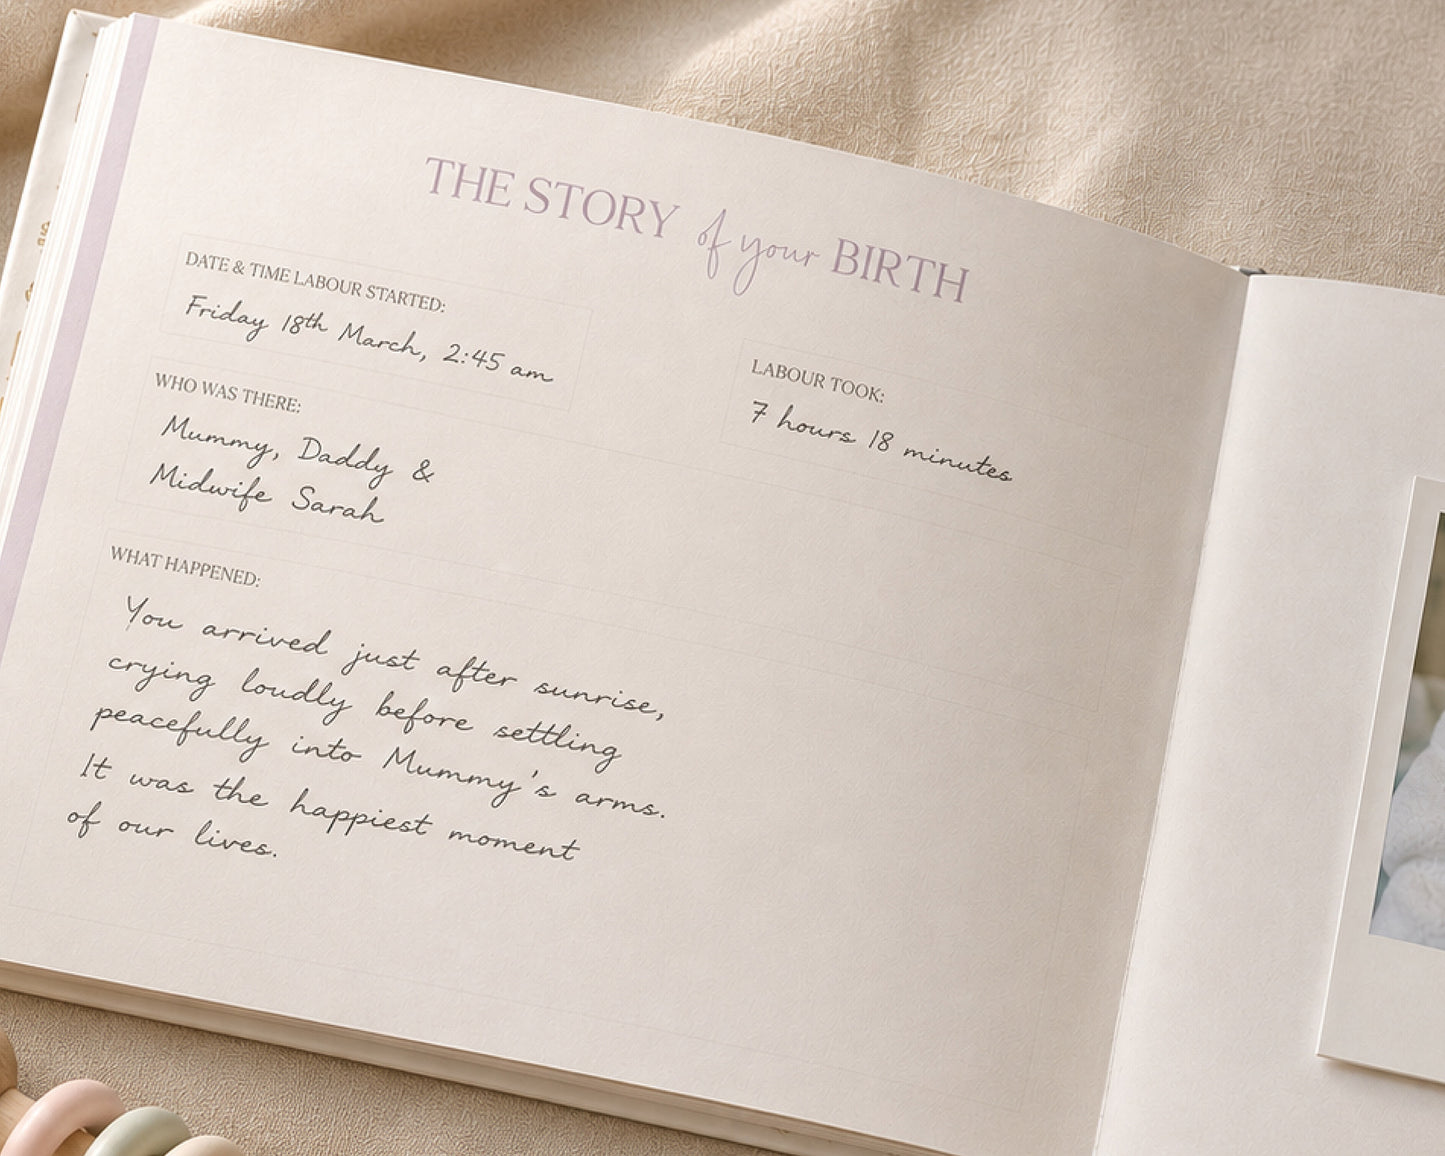 THE STORY of your BIRTH
DATE & TIME LABOUR STARTED:
Friday 18th March, 2:45 am
LABOUR TOOK:
7 hours 18 minutes
WHO WAS THERE:
Mummy, Daddy &
Midwife Sarah
WHAT HAPPENED:
You arrived just after sunrise,
crying loudly before settling
peacefully into Mummy's arms.
It was the happiest moment
of our lives.